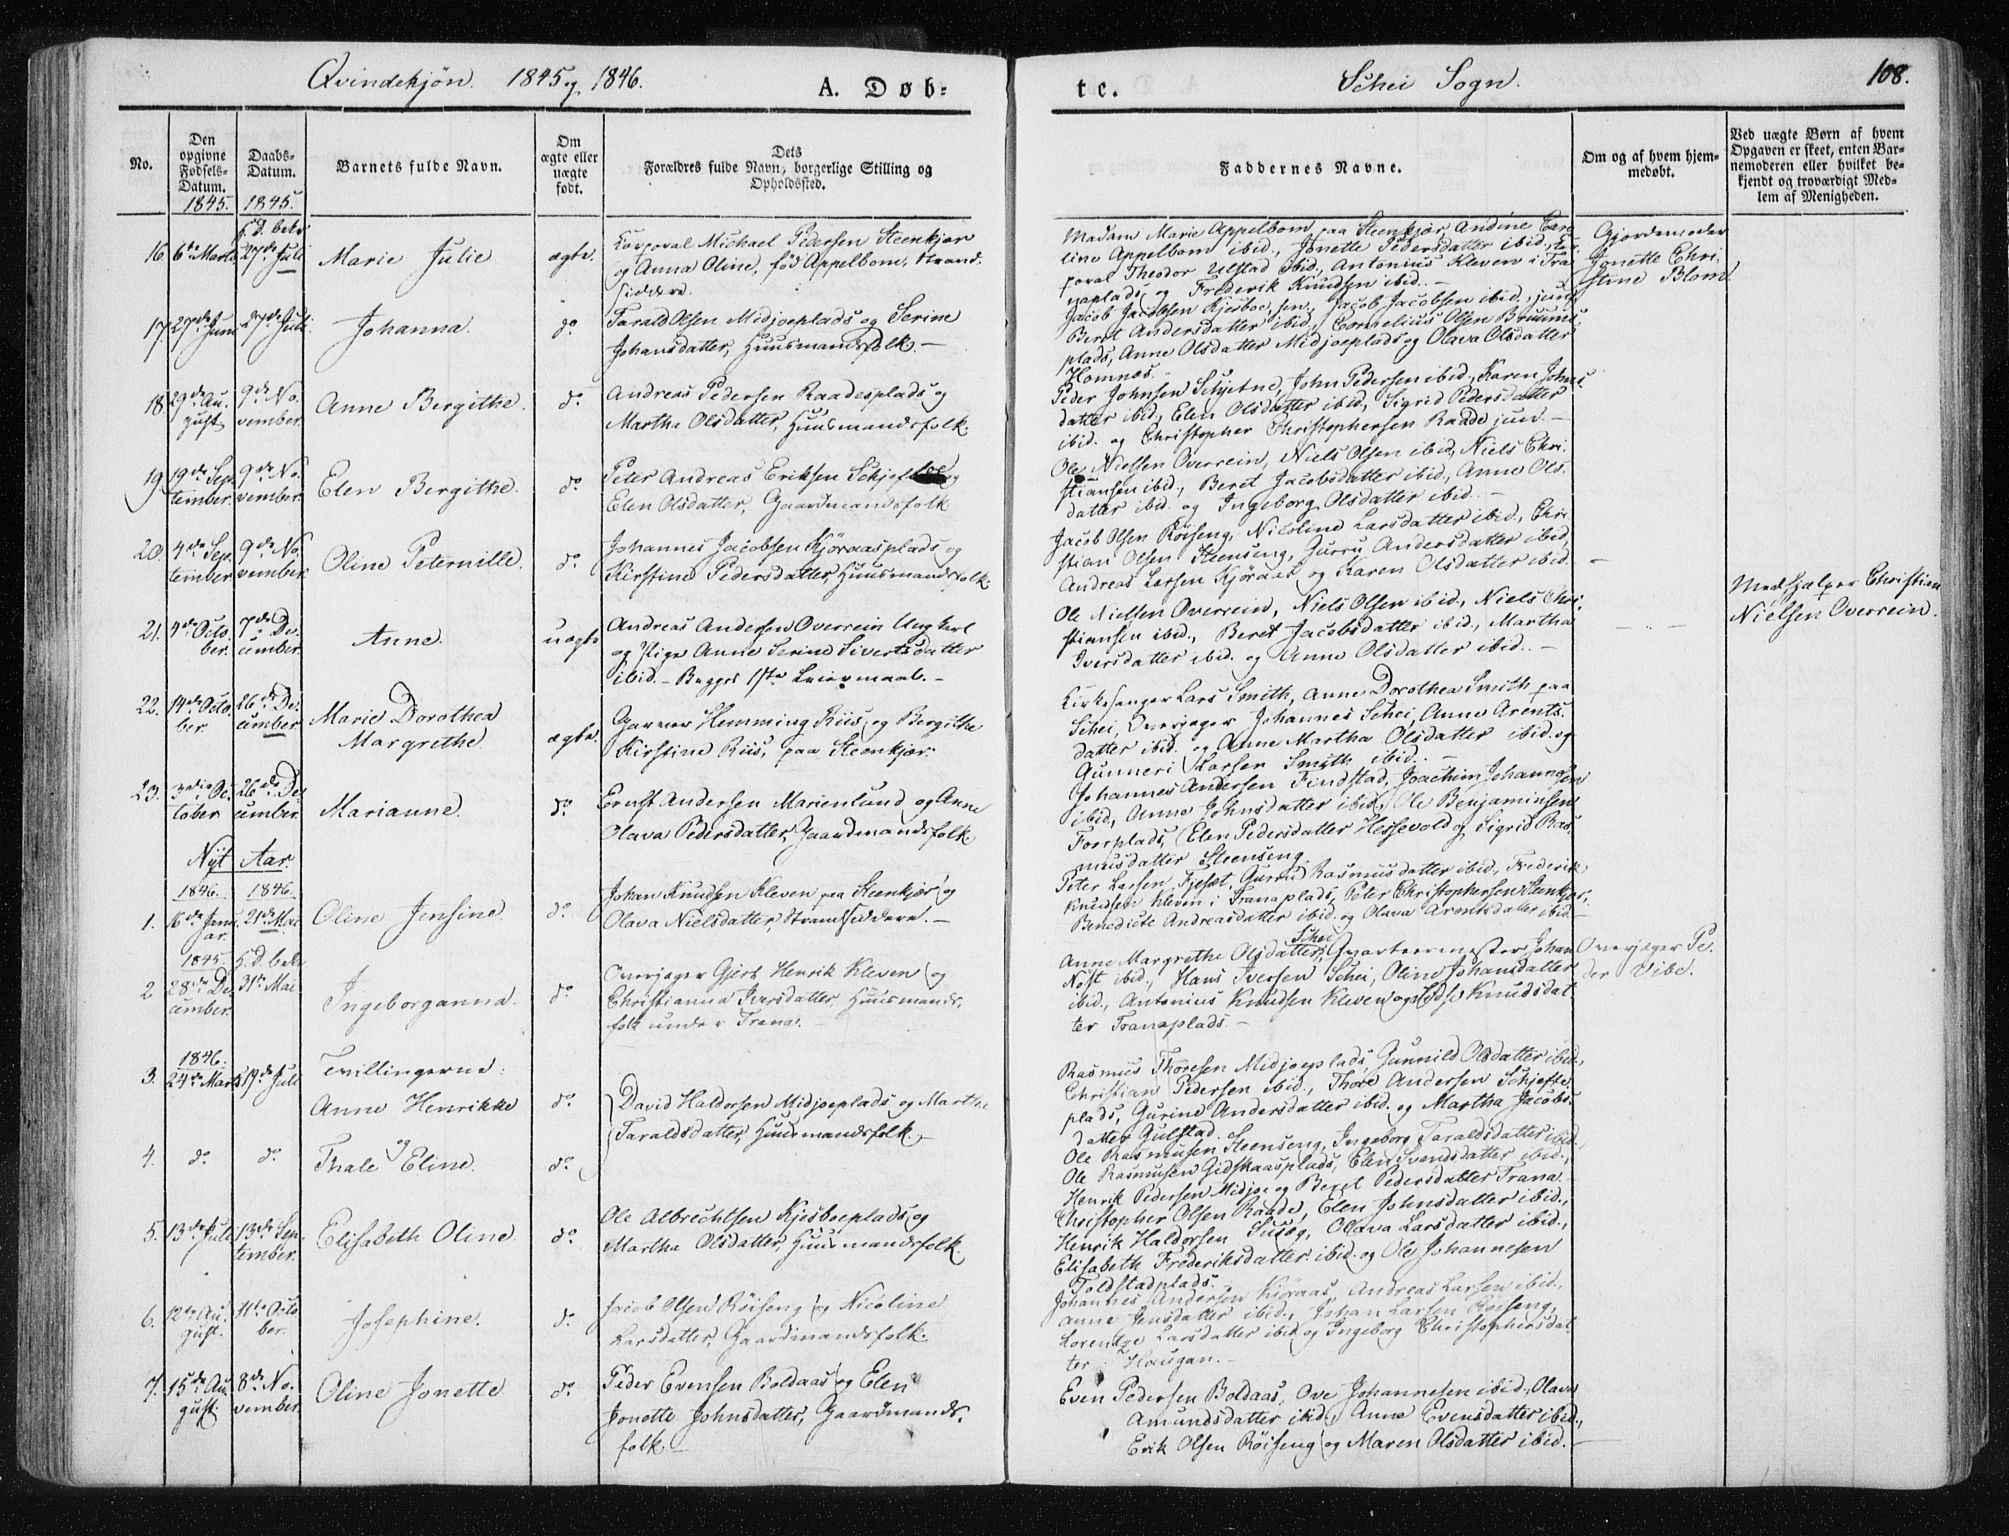 Qvindekjøn. 1845 og 1846.
A. Døb-
te.
Schei Sogn.
108.
No.
Den opgivne Fødsels-Datum.
Daabs-Datum.
Barnets fulde Navn.
Om ægte eller uægte født.
Dets Forældres fulde Navn, borgerlige Stilling og Opholdssted.
Faddernes Navne.
Om og af hvem hjem-medøbt.
Ved uægte Børn af hvem Opgaven er skeet, enten Bar-nemoderen eller hvilket be-kjendt og troværdigt Med-lem af Menigheden.
1845. 1845.
16 6te Marts 27de Juli Marie Julie ægte.
Korporal Michael Pedersen Steenkjær
og Anna Oline, fød Appelbom, Strand-
siddere.
Madam Marie Appelbom paa Steenkjær, Andine Caro
line Appelbom ibid., Jonette Pedersdatter ibid., Cor
poral Theodor Ulstad ibid., Antonius Kleven i Tra
naplads og Frederik Knudsen ibid. -
Gjordemoder
Jonette Chri-
stine Blom.
17 27de Juni 27de Juli Johanna. do
Tarald Olsen Midjoeplads og Serine
Johansdatter, Huusmandsfolk. -
Jacob Jacobsen Kjesboe, sen., Jacob Jacobsen ibid., jun.,
Beret Andersdatter ibid., Cornelius Olsen Bruums
plads, Anne Olsdatter Midjoeplads og Olava Olsdatter
Homnæs. -
18 29de Au-gust 9de No-vember. Anne Bergithe. do
Andreas Pedersen Raadesplads og
Martha Olsdatter, Huusmandsfolk.
Peder Johnsen Schjetne, John Pedersen ibid., Karen Johns
datter ibid., Elen Olsdatter ibid., Sigrid Pedersdatter
ibid. og Christopher Christophersen Raade jun. -
19 19de Sep-tember 9de No-vember. Elen Bergithe. do
Peter Andreas Eriksen Schjefte og
Elen Olsdatter, Gaardmandsfolk
Ole Nielsen Overrein, Niels Olsen ibid., Niels Chri-
stiansen ibid., Beret Jacobsdatter ibid., Anne Ols-
datter ibid. og Ingeborg Olsdatter ibid. -
20. 4de Sep-tember 9de No-vember. Oline Peternille. do
Johannes Jacobsen Kjøraasplads og
Kirstine Pedersdatter, Huusmandsfolk.
Jacob Olsen Røiseng, Nicoline Larsdatter ibid., Chri
stian Olsen Steenseng, Gurru Andersdatter ibid.
Andreas Larsen Kjøraas og Karen Olsdatter ibid.
21. 4de Octo-ber. 7de De-cember. Anne. uægte
Andreas Andersen Overrein Ungkarl
og Pige Anne Serine Sivertsdatter
ibid. - Begges 1ste Leiermaal. -
Ole Nielsen Overrein, Niels Olsen ibid., Niels Chri-
stiansen ibid., Beret Jacobsdatter ibid., Martha
Iversdatter ibid. og Anne Olsdatter ibid. -
Medhjælper Christian
Nielsen Overrein.
22. 14de Octo-ber. 26de De-cember. Marie Dorothea
Margrethe. ægte.
Garver Hemming Riis og Bergithe
Kirstine Riis, paa Steenkjær.
Kirkesanger Lars Smith, Anne Dorothea Smith paa
Schei, Overjæger Johannes Schei, Anne Arents-
datter ibid. og Anne Martha Olsdatter ibid. og
Gunneri Larsen Smith ibid. -
23. 3die Oc-tober 26de De-cember. Marianne. do
Ernst Andersen Marienlund og Anne
Olava Pedersdatter, Gaardmandsfolk.
Johannes Andersen Findstad, Joachim Johannesen
ibid., Anne Johnsdatter ibid., Ole Benjaminsen
Foerplads, Elen Pedersdatter Hessevold og Sigrid Ras
musdatter Steenseng.
Nyt Aar.
1846. 1846.
1. 16de Janu-ar. 21de Mai Oline Jensine do
Johan Knudsen Kleven paa Steenkjær og
Olava Nielsdatter, Strandsiddere. -
Peter Larsen Fjesæt, Gurru Rasmusdatter ibid., Frederik
Knudsen Kleven i Tranaplads, Peter Christophersen Steenkjær,
Benedicte Andreasdatter ibid. og Olava Arentsdatter ibid.
1845.
2 28de De-cember. 31te Mai Ingeborganna. do
Overjæger Gjert Henrik Kleven og
Christianna Iversdatter, Huusmands-
folk under Trana. -
Anne Margrethe Olsdatter Schei, Qvarteermester Johan
Nøst ibid., Hans Iversen Schei, Oline Johansdatter
ibid., Antonius Knudsen Kleven og Knudsdat-
ter Tranaplads. -
Overjæger Pe-
der Vibe.
1846.
3. 24de Marts 19de Juli Tvillingerne:
Anne Henrikke do
og
4. do do Thale Eline. do
David Haldorsen Midjoeplads og Martha
Taraldsdatter, Huusmandsfolk. -
Rasmus Thoresen Midjoeplads, Gunnild Olsdatter ibid.,
Christian Pedersen ibid., Thore Andersen Schjefte
plads, Gurine Andersdatter ibid. og Martha Jacobs-
datter Gulstad.
Ole Rasmusen Steenseng, Ingeborg Taraldsdatter ibid.,
Ole Rasmusen Gidskaasplads, Elen Svendsdatter ibid.,
Henrik Pedersen Midjoe og Beret Pedersdatter Trana.
5. 13de Juli 13de Sep-tember. Elisabeth Oline. do
Ole Albrechtsen Kjesboeplads og
Martha Olsdatter, Huusmandsfolk.
Christopher Olsen Raade, Elen Johnsdatter ibid.,
Henrik Haldorsen Susæg, Olava Larsdatter ibid.,
Elisabeth Frederiksdatter ibid. og Ole Johannesen
Toldstadplads.
6. 12te Au-gust. 11te Octo-ber. Josephine. do
Jacob Olsen Røiseng og Nicoline
Larsdatter, Gaardmandsfolk.
Johannes Andersen Kiøraas, Andreas Larsen ibid.,
Anne Jensdatter ibid., Johan Larsen Røiseng,
Lorentze Larsdatter ibid. og Ingeborg Christophersdat
ter Haugan. -
7. 15de Au-gust. 8de No-vember. Oline Jonette do
Peder Evensen Boldaas og Elen
Jonette Johnsdatter, Gaardmands-
folk. -
Even Pedersen Boldaas, Ove Johannesen ibid., Olava
Amundsdatter ibid., Anne Evensdatter ibid.,
Erik Olsen Røiseng og Maren Olsdatter ibid. -